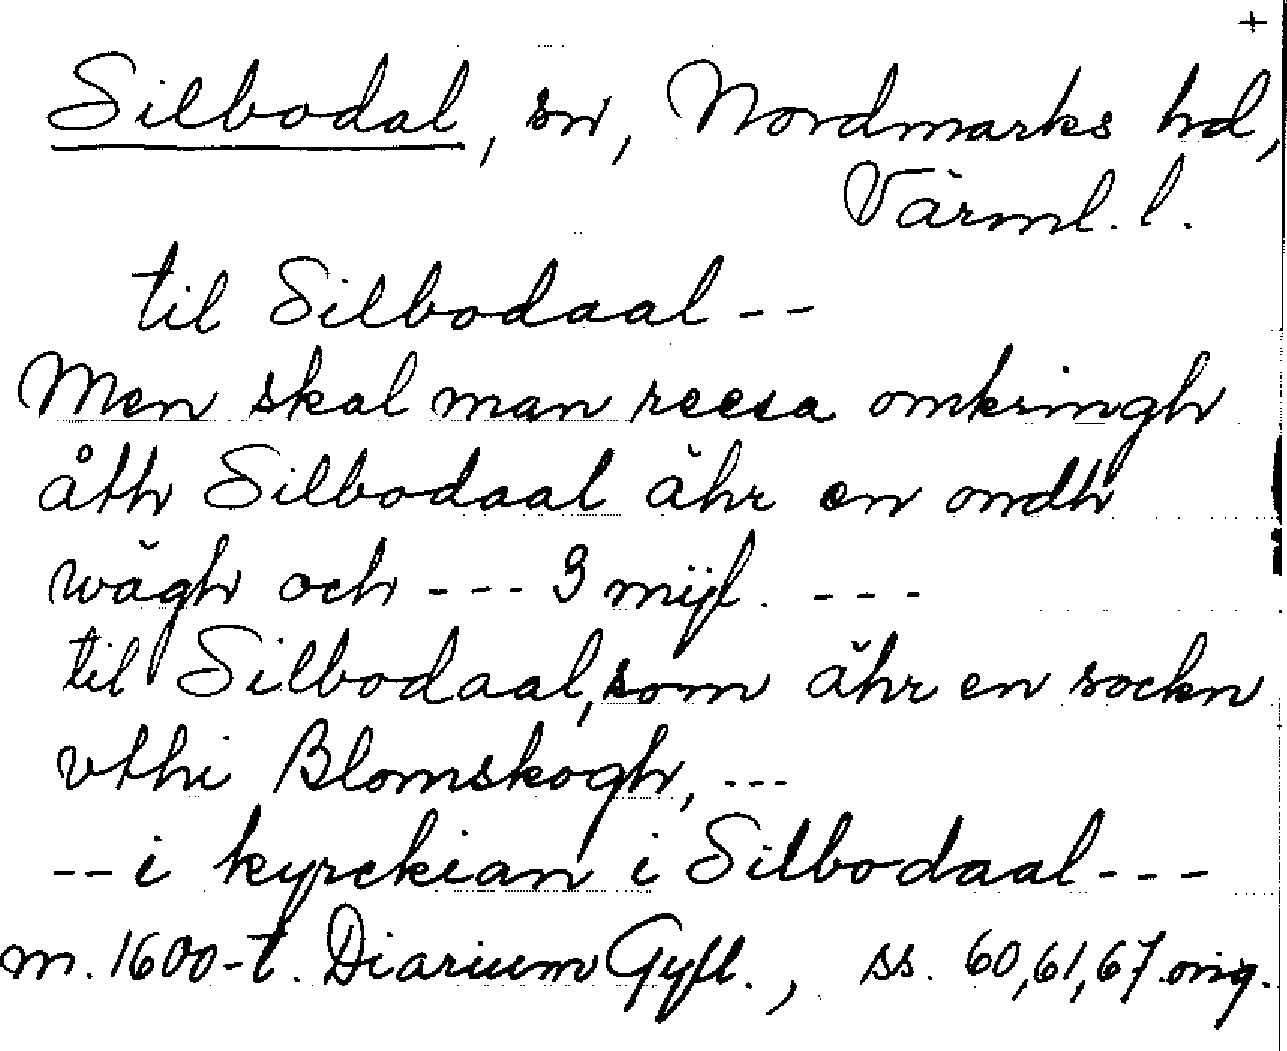 +
Silbodal, sn, Nordmarks hd,
Värml. l.
til Silbodaal --
Men skal man reesa omkringh
åth Silbodaal ähr en ondh
wägh och --- 3 mijl. ---
til Silbodaal, som ähr en sockn
vthi Blomskogh, ---
-- i kyrckian i Silbodaal ---
m. 1600-t. Diarium Gyll., ss. 60, 61, 67 orig.